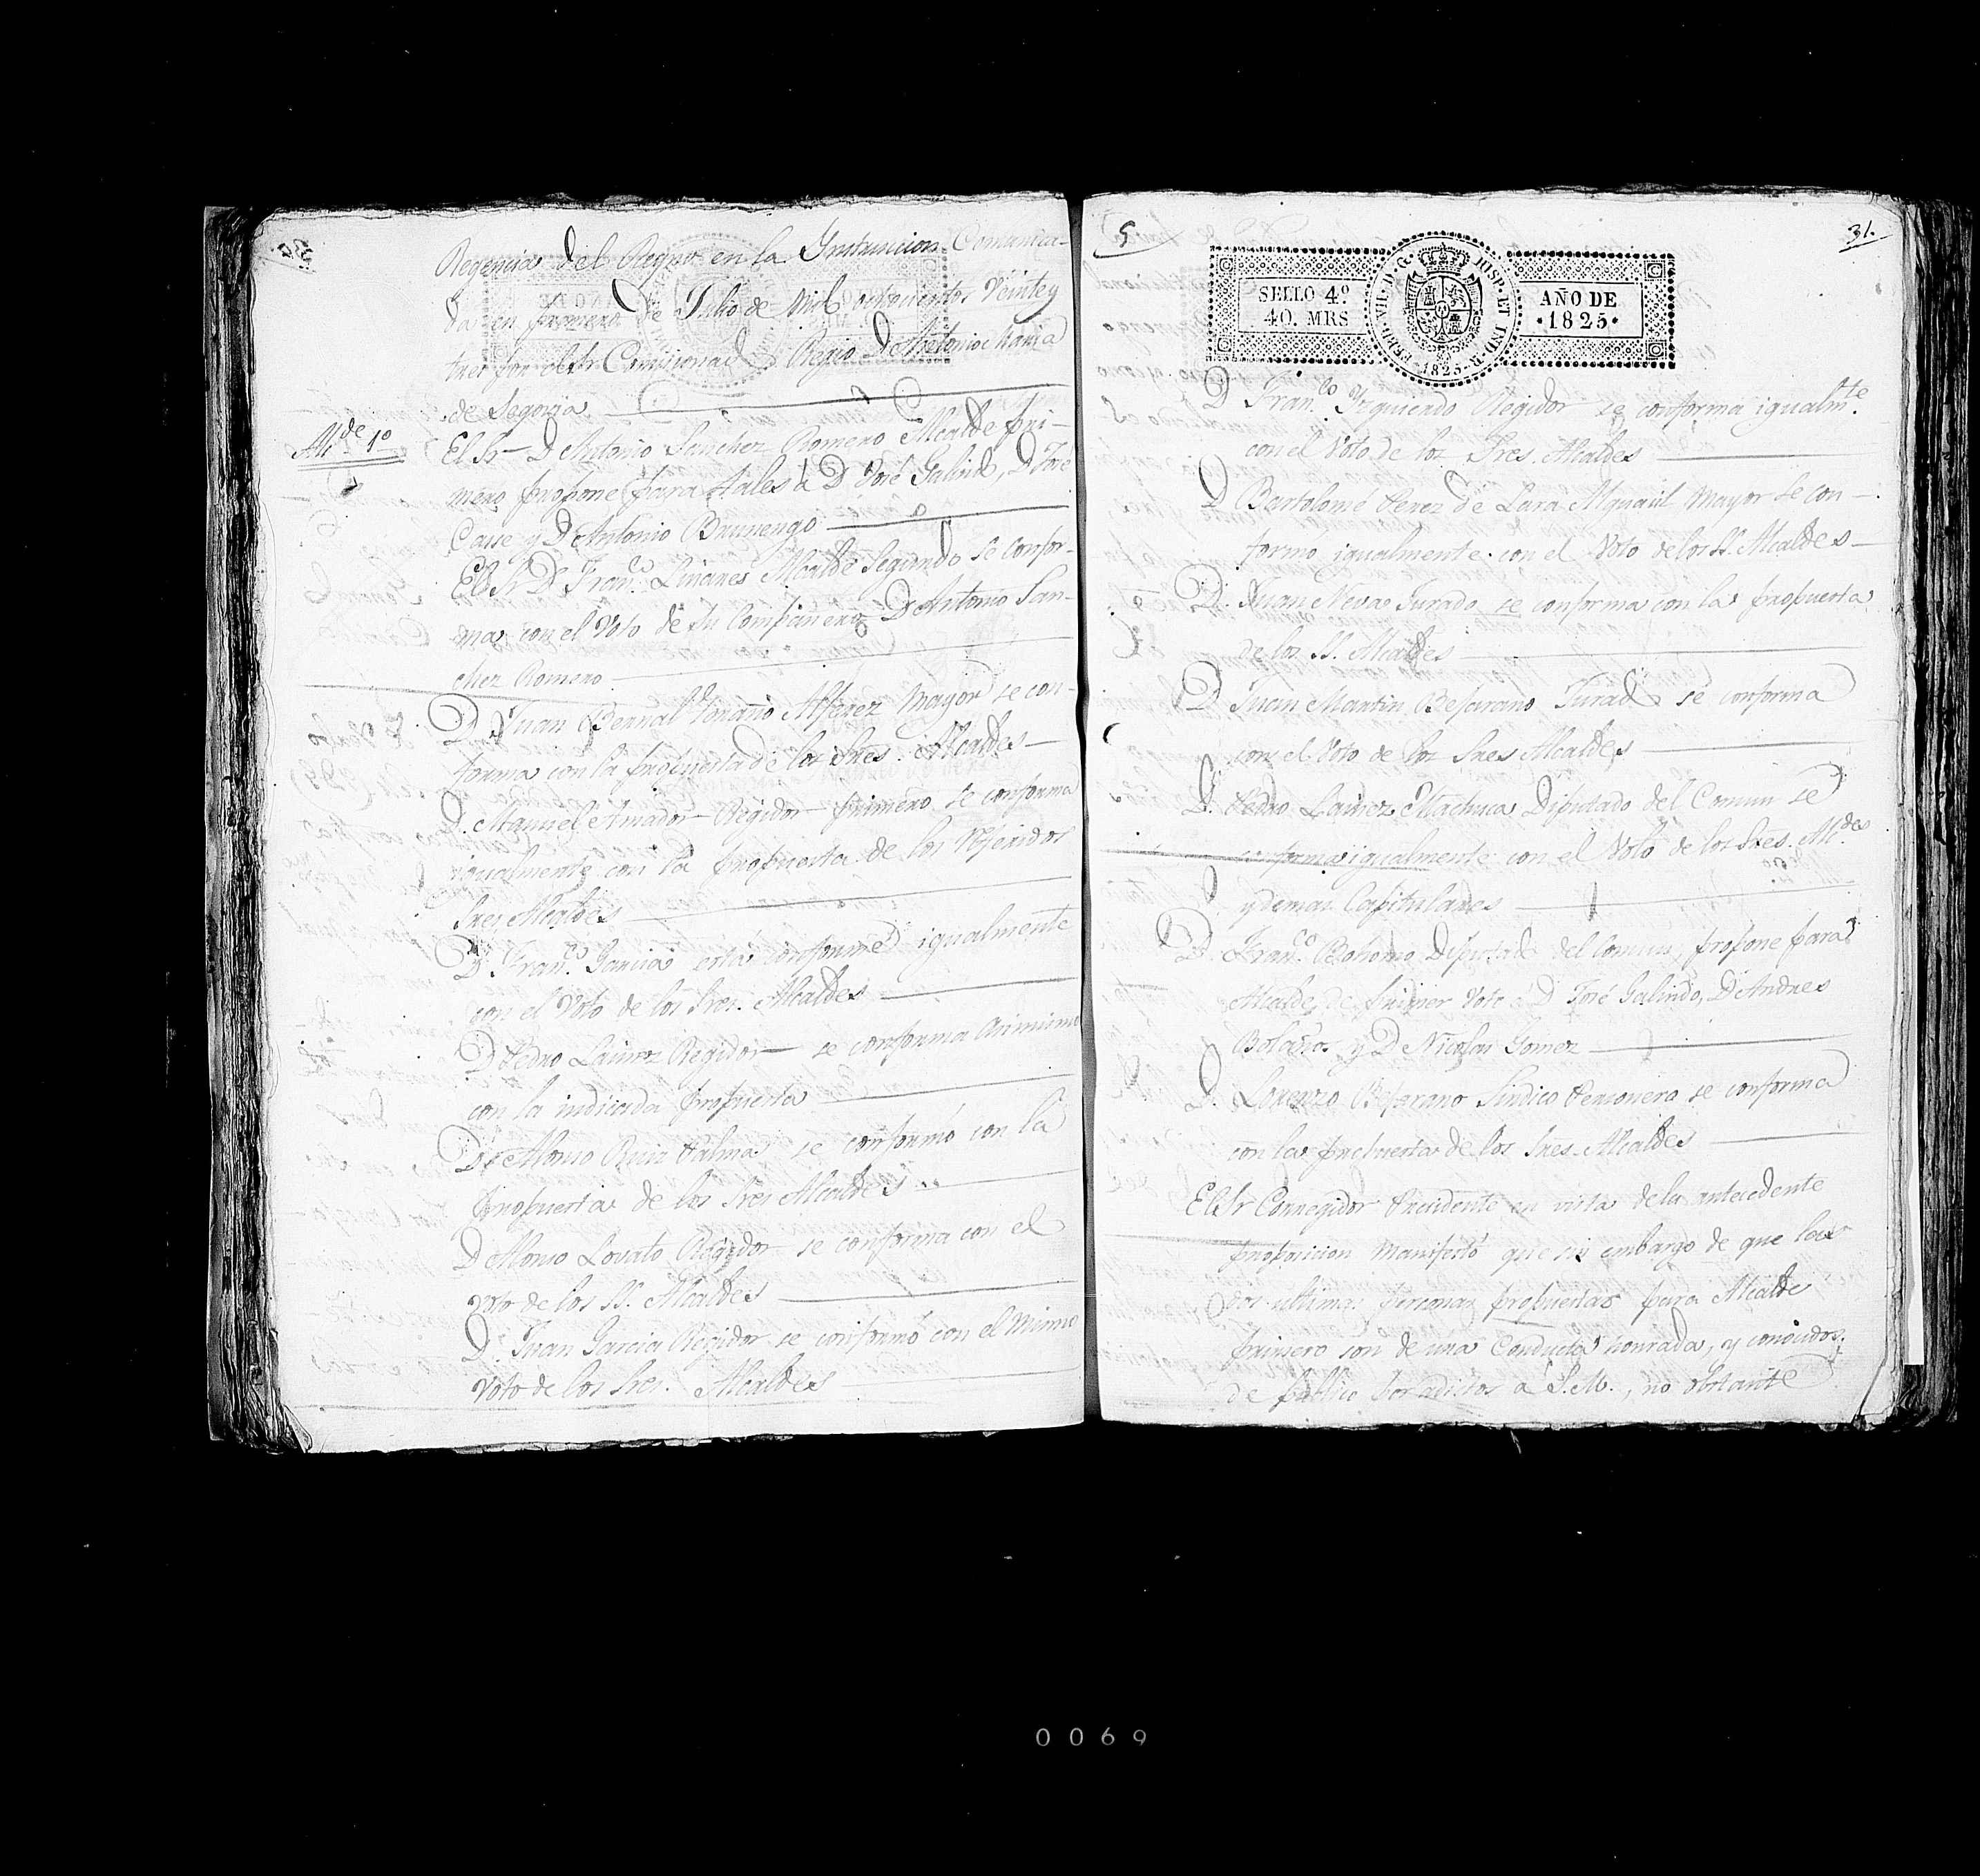 Regencia del Reyno en la Instruccion Comunica-
da en primero de Julio de mil ochocientos Veinte y
tres por el Sr Comisionado Regio D. Antonio Maria
de Segovia
Alc.de 1.o
El Sr D Antonio Sanchez Romero Alcalde pri-
mero propone para tales á D José Galindo, D José
y D Antonio
El Sr D Fran.co Linares Alcalde Segundo se confor-
ma con el Voto de su Compañero D Antonio San-
chez Romero
D Juan Bernal Alferez Mayor se con-
forma con la propuesta de los Sres. Alcaldes
D. Manuel Amador Regidor primero se conforma
igualmente con la propuesta de los Referidos
Sres Alcaldes
D. Fran.co Garcia está conforme igualmente
con el Voto de los Sres. Alcaldes
D Pedro Lainez Regidor se conforma Asimismo
con la indicada propuesta
D. Alonso Ruiz Palma se conformó con la
propuesta de los Sres Alcaldes
D Alonso Lovato Regidor se conforma con el
Voto de los SS. Alcaldes
D. Juan Garcia Regidor se conformó con el Mismo
Voto de los Sres. Alcaldes
5
31.
SELLO 4.º
40. MRS
FERD. VII. D. G. HISP. ET IND. R.
1825
AÑO DE
1825
D Fran.co Yzquierdo Regidor se conforma igualm.te
con el Voto de los Sres. Alcaldes
D Bartolomé Perez de Lara Alguacil Mayor se con-
formó igualmente con el Voto de los SS. Alcaldes
D. Juan Nevas Jurado se conforma con la propuesta
de los SS. Alcaldes
D Juan Martin Bejarano Jurado se conforma
con el Voto de los Sres Alcaldes
D. Pedro Lainez Machuca Diputado del Comun se
conforma igualmente con el Voto de los Sres. Alc.des
y demas Capitulares
D. Fran.co Diputado del Comun, propone para
Alcalde de primer Voto á D José Galindo, D Andres
Bolaños y D Nicolas Gomez
D. Lorenzo Bejarano Sindico Personero se conforma
con la propuesta de los Sres. Alcaldes
El Sr Corregidor Presidente en vista de la antecedente
proposicion Manifestó que sin embargo de que las
dos ultimas personas propuestas para Alcalde
primero son de una Conducta honrada, y conocidos
de publico por adictos á S.M., no obstante
0069